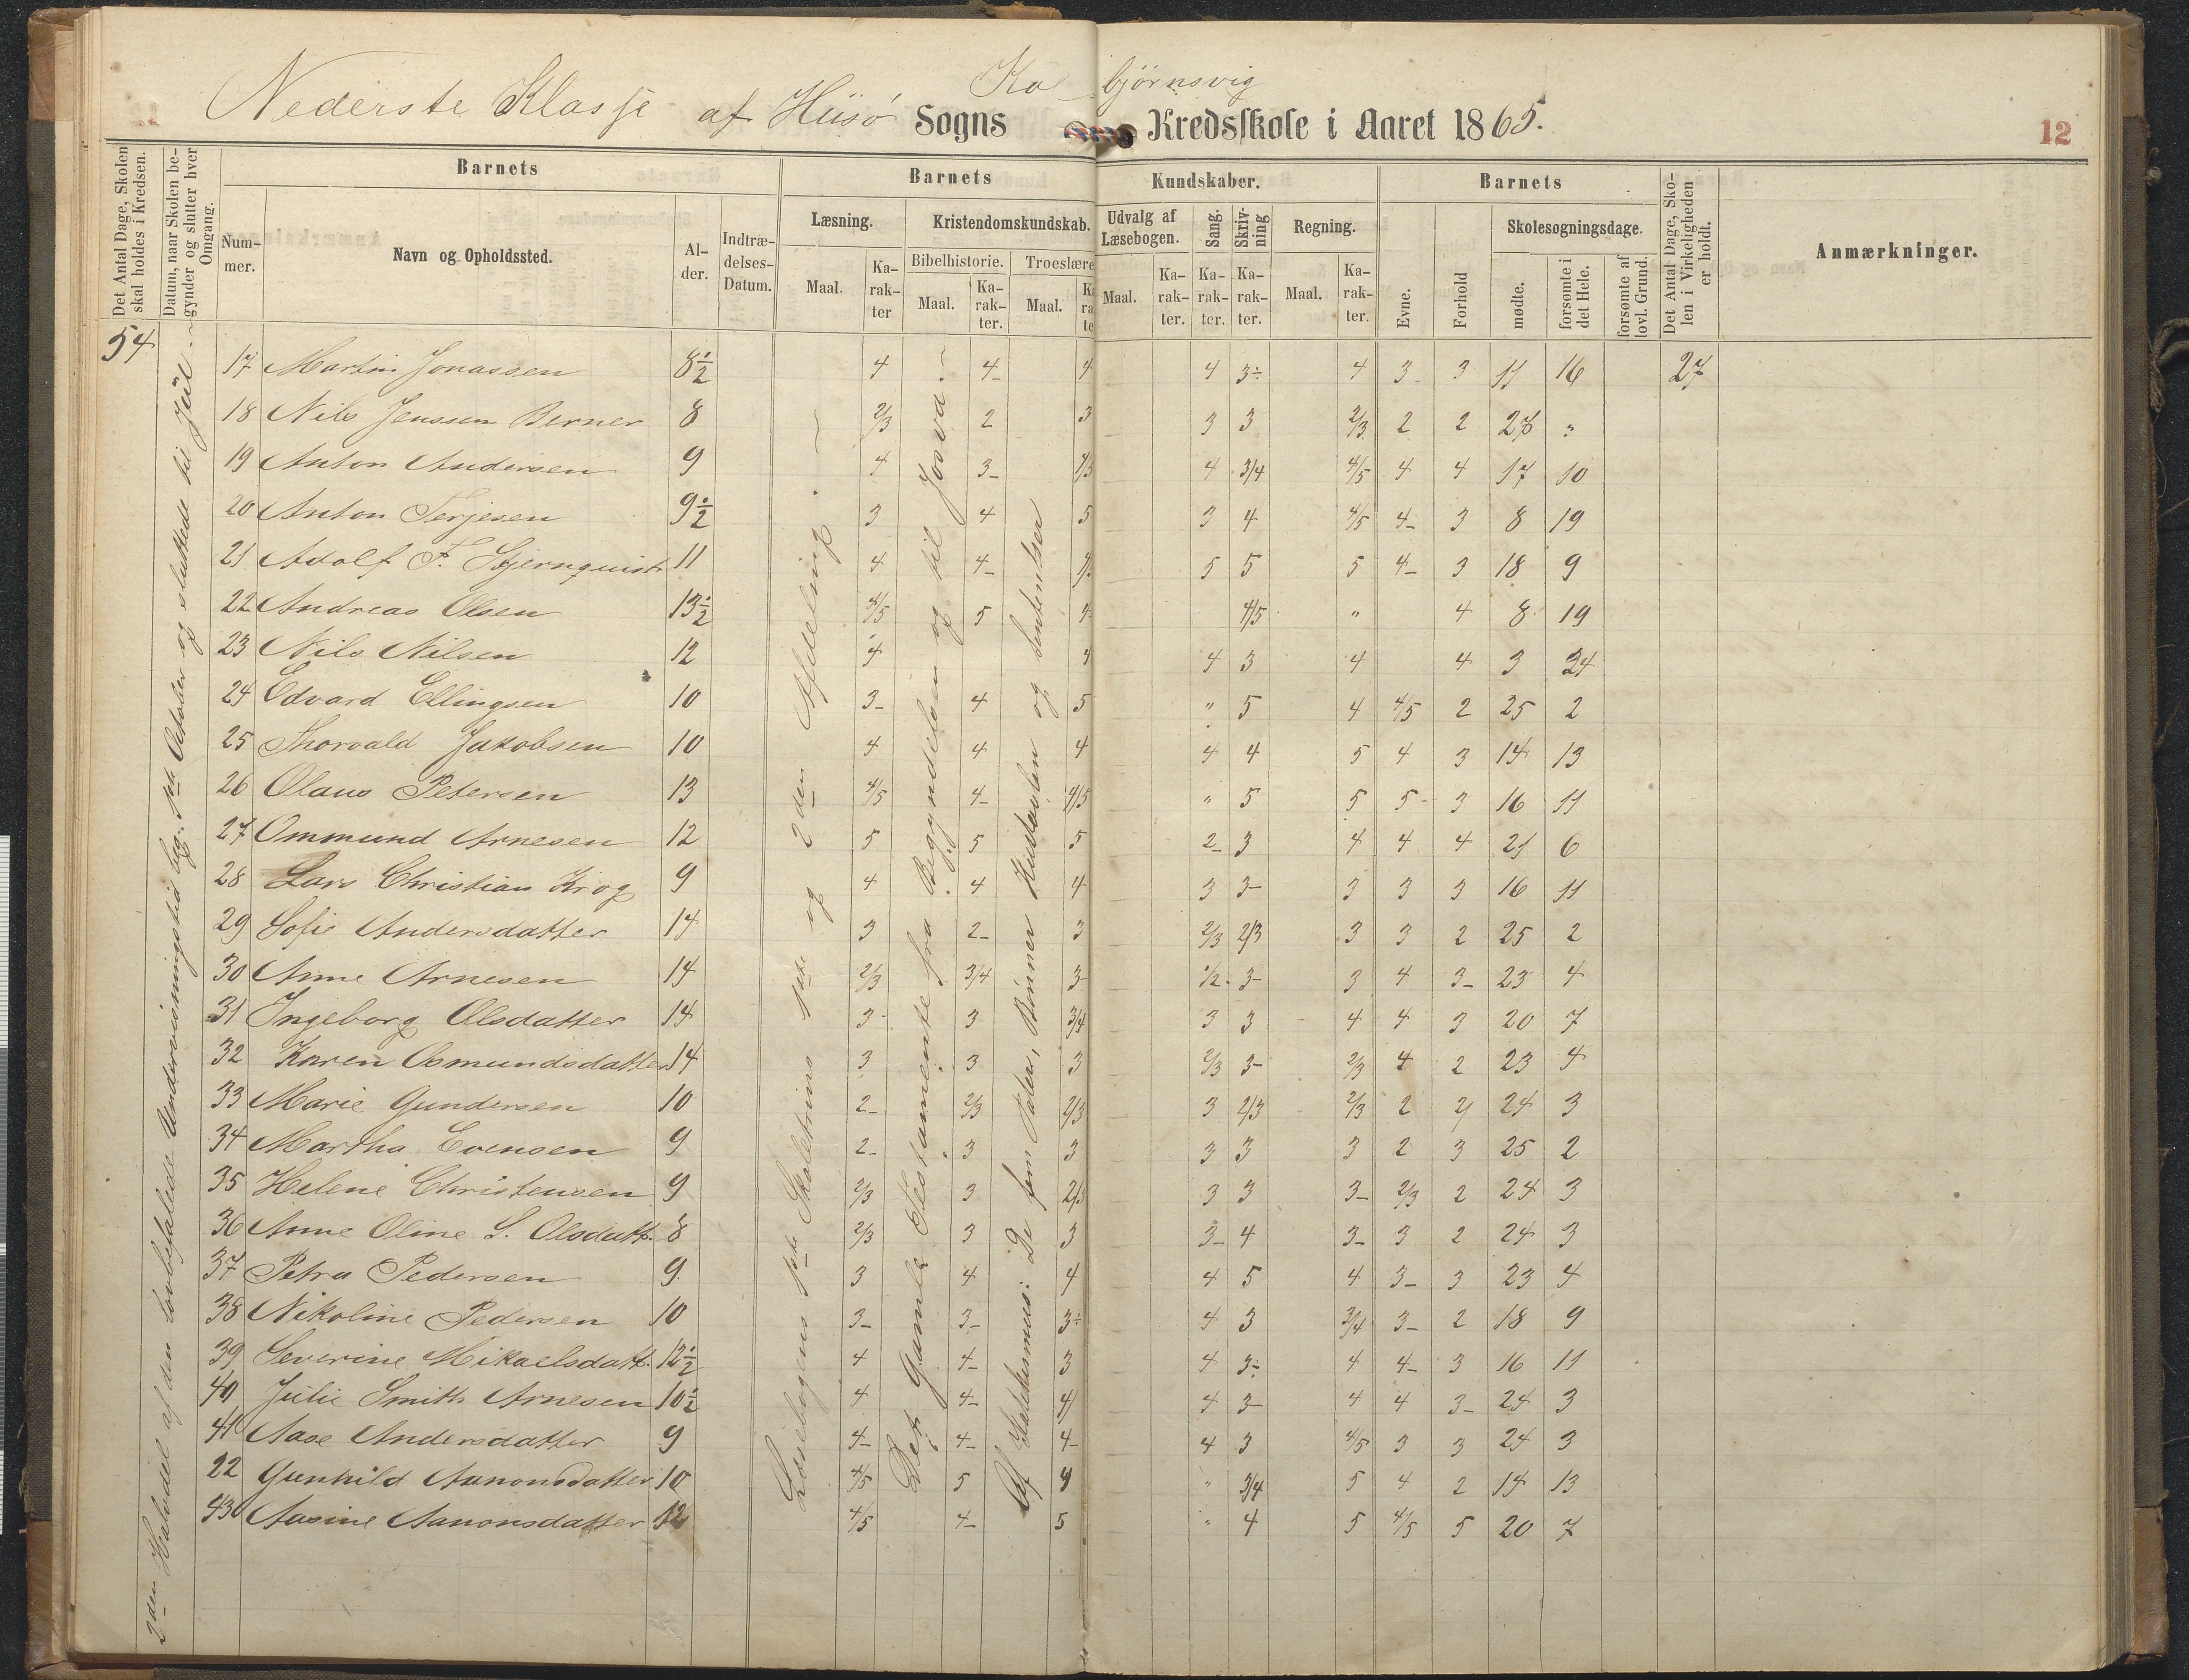 Nederste Klasse af Hisø Sogns Ko bjørnsvig Kredsskole i Aaret 1865.
12
Det Antal Dage, Skolen skal holdes i Kredsen.
Datum, naar Skolen begynder og slutter hver Omgang.
Barnets
Barnets
Kundskaber.
Barnets
Det Antal Dage, Skolen i Virkeligheden er holdt.
Anmærkninger.
Nummer.
Navn og Opholdssted.
Alder.
Indtrædelses-Datum.
Læsning.
Kristendomskundskab.
Udvalg af Læsebogen.
Sang.
Skrivning
Regning.
Evne.
Forhold
Skolesøgningsdage.
Bibelhistorie.
Troeslære
Maal.
Karakter
Maal.
Karakter.
Maal.
Maal.
Karakter.
Karakter.
Karakter.
Maal.
Karakter.
mødte.
forsømte i det Hele.
forsømte af lovl. Grund.
54
2den Halvdel af den lovbefalede Undervisningstid beg. 1ste October og sluttede til Jul
Læsebogens 1ste Skoletrins 1ste og 2den Afdeling.
Det gamle Testamente fra Begyndelsen og til Josva.
Af Katekismus: De fem Parter, Bønner Hustavlen og Sententser
17 Martin Jonassen 8½ 4 4- 4 4 3÷ 4 3- 3 11 16 27
18 Nils Jenssen Berner 8 2/3 2 3 3 3 2/3 2 2 27 "
19 Anton Andersen 9 4 3- 4/5 4 3/4 4/5 4 4 17 10
20 Anton Terjesen 9½ 3 4 5 3 4 4/5 4- 3 8 19
21 Adolf F. Stjernquist 11 4 4- 4 5 5 5 4- 3 18 9
22 Andreas Olsen 13½ 4/5 5 4 4/5 " 4 8 19
23 Nils Nilsen 12 4 4 4 3 4 4 3 24
24 Edvard Ellingsen 10 3- 4 5 " 5 4 4/5 2 25 2
25 Thorvald Jakobsen 10 4 4 4 4 4 5 4 3 14 13
26 Olaus Petersen 13 4/5 4- 4/5 " 5 5 5- 3 16 11
27 Ommund Arnesen 12 5 5 5 2- 3 4 4 4 21 6
28 Lars Christian Krog 9 4 4 4 3 3- 3 3 3 16 11
29 Sofie Andersdatter 14 3 2- 3 2/3 2/3 3 3 2 25 2
30 Anne Arnesen 14 2/3 3/4 3- 1/2 3- 3 4 3- 23 4
31 Ingeborg Olsdatter 14 3- 3 3/4 3 3 4 4 3 20 7
32 Karen Osmundsdatter 14 3 3 3 2/3 3- 2/3 4 2 23 4
33 Marie Gundersen 10 2- 2/3 2/3 3 2/3 2/3 2 2 24 3
34 Martha Evensen 9 2- 3 3 3 3 3 2 3 25 2
35 Helene Christensen 9 2/3 3 2/3 3 3 3- 2/3 2 24 3
36 Anne Oline S. Olsdatt. 8 2/3 3 3 3- 4 3- 3 2 24 3
37 Petra Pedersen 9. 3 4 4 4 5 4 3- 3 23 4
38 Nikoline Pedersen 10 3- 3- 3÷ 4 3 3/4 3- 2 18 9
39 Severine Mikaelsdatt. 12½ 4 4- 3 4 3÷ 4 4- 3 16 11
40 Julie Smith Arnesen 10½ 4 4- 4 4 3- 4 4 3- 24 3
41 Aase Andersdatter 9 4- 4- 4- 4 3 4/5 3 3 24 3
22 Gunhild Aanonsdatter 10 4/5 5 4 " 3/4 5 4 2 14 13
43 Aasine Aanonsdatter 12 4/5 4- 5 " 4 5 4/5 5 20 7